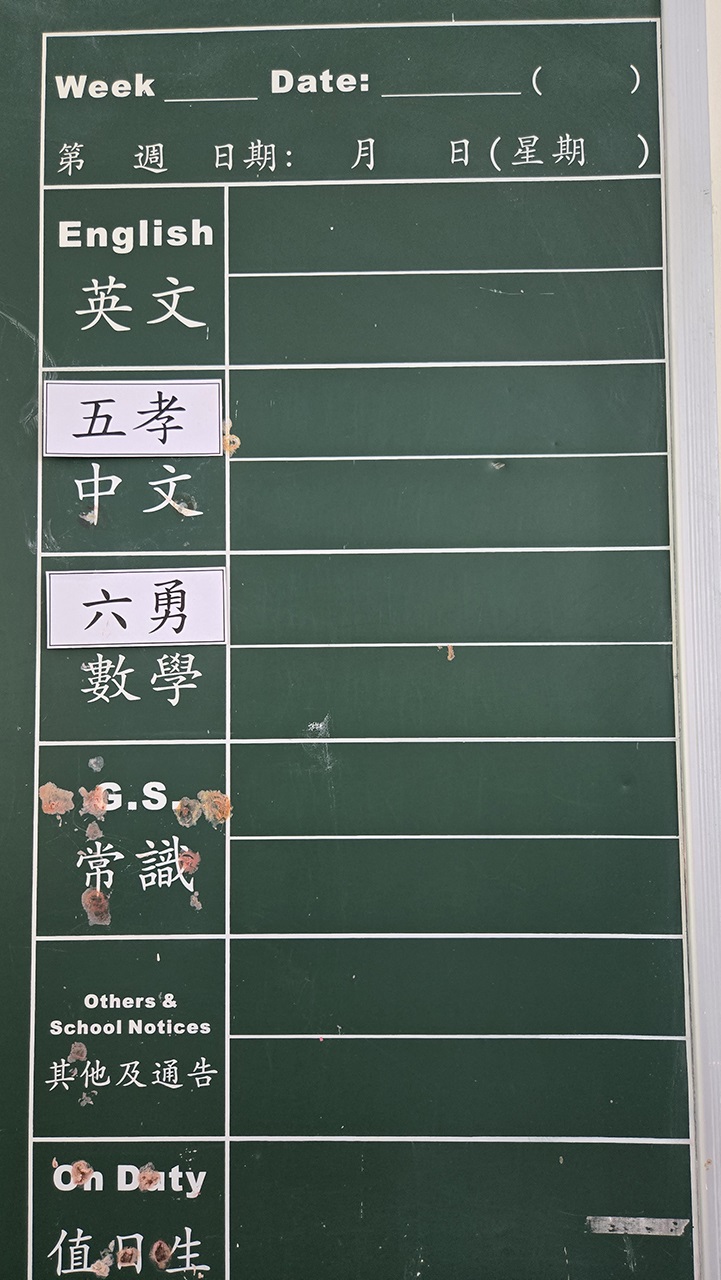 Week _____ Date: ________ ( )
第 週 日期: 月 日(星期 )
English
英文
五孝
中文
六勇
數學
G.S.
常識
Others &
School Notices
其他及通告
On Duty
值日生